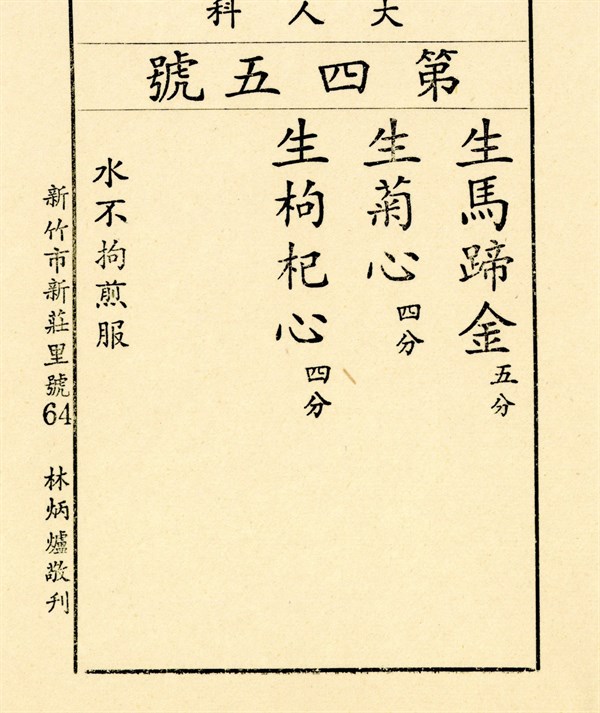 大人科
第四五號
生馬蹄金 五分
生菊心 四分
生枸杞心 四分
水不拘煎服
新竹市新莊里號64 林炳爐敬刋